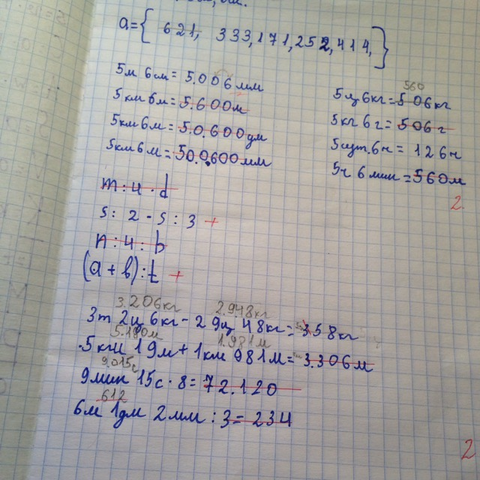 a={ 621, 333,171,252,414, }
5м 6м= 5.006мм
5км6м= 5.600м
5км6м= 50.600дм
5км6м= 500.600мм
560
5ц6кг= 506кг
5кг6г= 506г
5сут.6ч= 126ч
5ч 6мин=560м
2.
m:4·d
s:2-s:3 +
n:4:b
(a+b):t +
3.206кг 2.948кг
3т 2ц 6кг-29ц 48кг=358кг
5.180м 1.981м
5км 19м+1км 981м=3.306м
9.015с
9мин 15с·8=72.120
612
6м 1дм 2мм:3=234
2